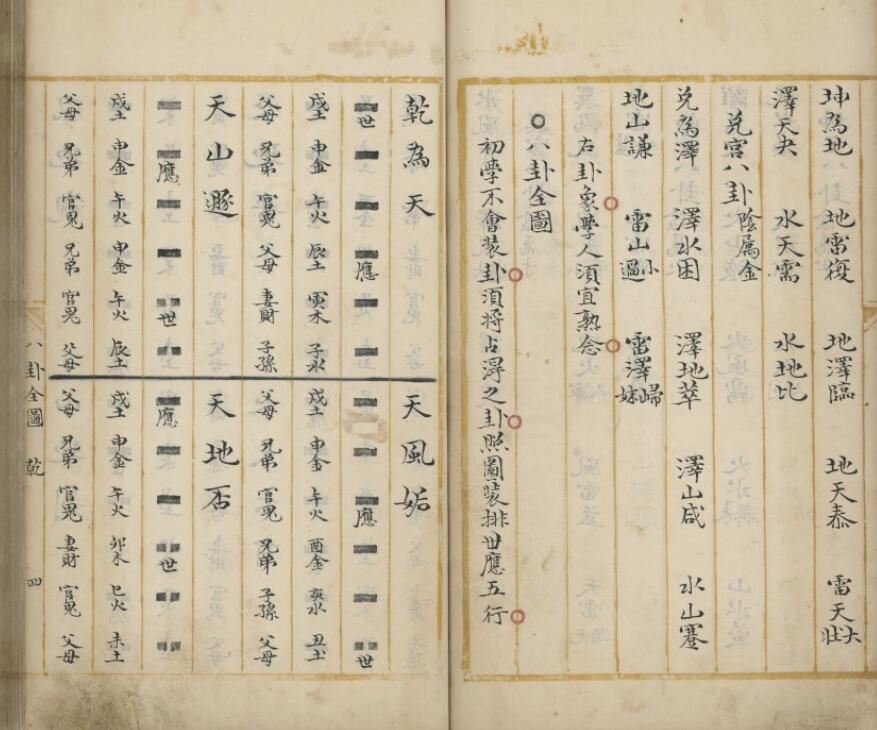 坤為地 地雷復 地澤臨 地天泰 雷天大壯
澤天夬 水天需 水地比
兌宮八卦 陰屬金
兌為澤 澤水困 澤地萃 澤山咸 水山蹇
地山謙 雷山小過 雷澤歸妹
右卦象學人須宜熟念
八卦全圖
初學不會装卦須將占淂之卦照圖装排世應五行
乾為天
世 應
戌土 申金 午火 辰土 寅木 子水
父母 兄弟 官鬼 父母 妻財 子孫
天山遯
應 世
戌土 申金 午火 申金 午火 辰土
父母 兄弟 官鬼 兄弟 官鬼 父母
天風姤
應 世
戌土 申金 午火 酉金 亥水 丑土
父母 兄弟 官鬼 兄弟 子孫 父母
天地否
應 世
戌土 申金 午火 卯木 巳火 未土
父母 兄弟 官鬼 妻財 官鬼 父母
八卦全圖 乾 四